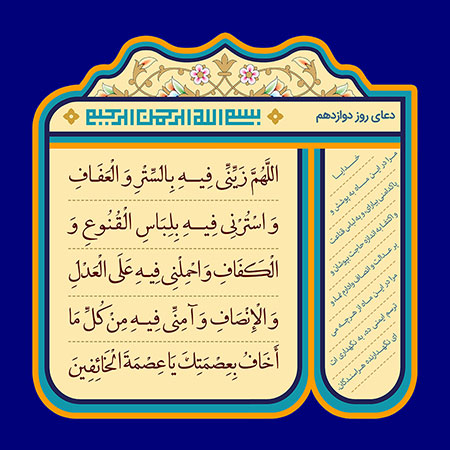 دعای روز دوازدهم
بسم الله الرحمن الرحیم
اللَّهُمَّ زَيِّنِّي فِيهِ بِالسِّتْرِ وَ الْعَفَافِ
وَ اسْتُرْنِي فِيهِ بِلِبَاسِ الْقُنُوعِ وَ
الْكَفَافِ وَ احْمِلْنِي فِيهِ عَلَى الْعَدْلِ
وَ الْإِنْصَافِ وَ آمِنِّي فِيهِ مِنْ كُلِّ مَا
أَخَافُ بِعِصْمَتِكَ يَا عِصْمَةَ الْخَائِفِينَ
خدایا
مرا در این ماه به پوشش و
پاکدامنی بیارای و به لباس قناعت
و اکتفا به اندازه حاجت بپوشان و
بر عدالت و انصاف وادارم نما و
مرا در این ماه از هرچه می
ترسم ایمنی ده، به نگهداری ات
ای نگهدارنده هراسندگان